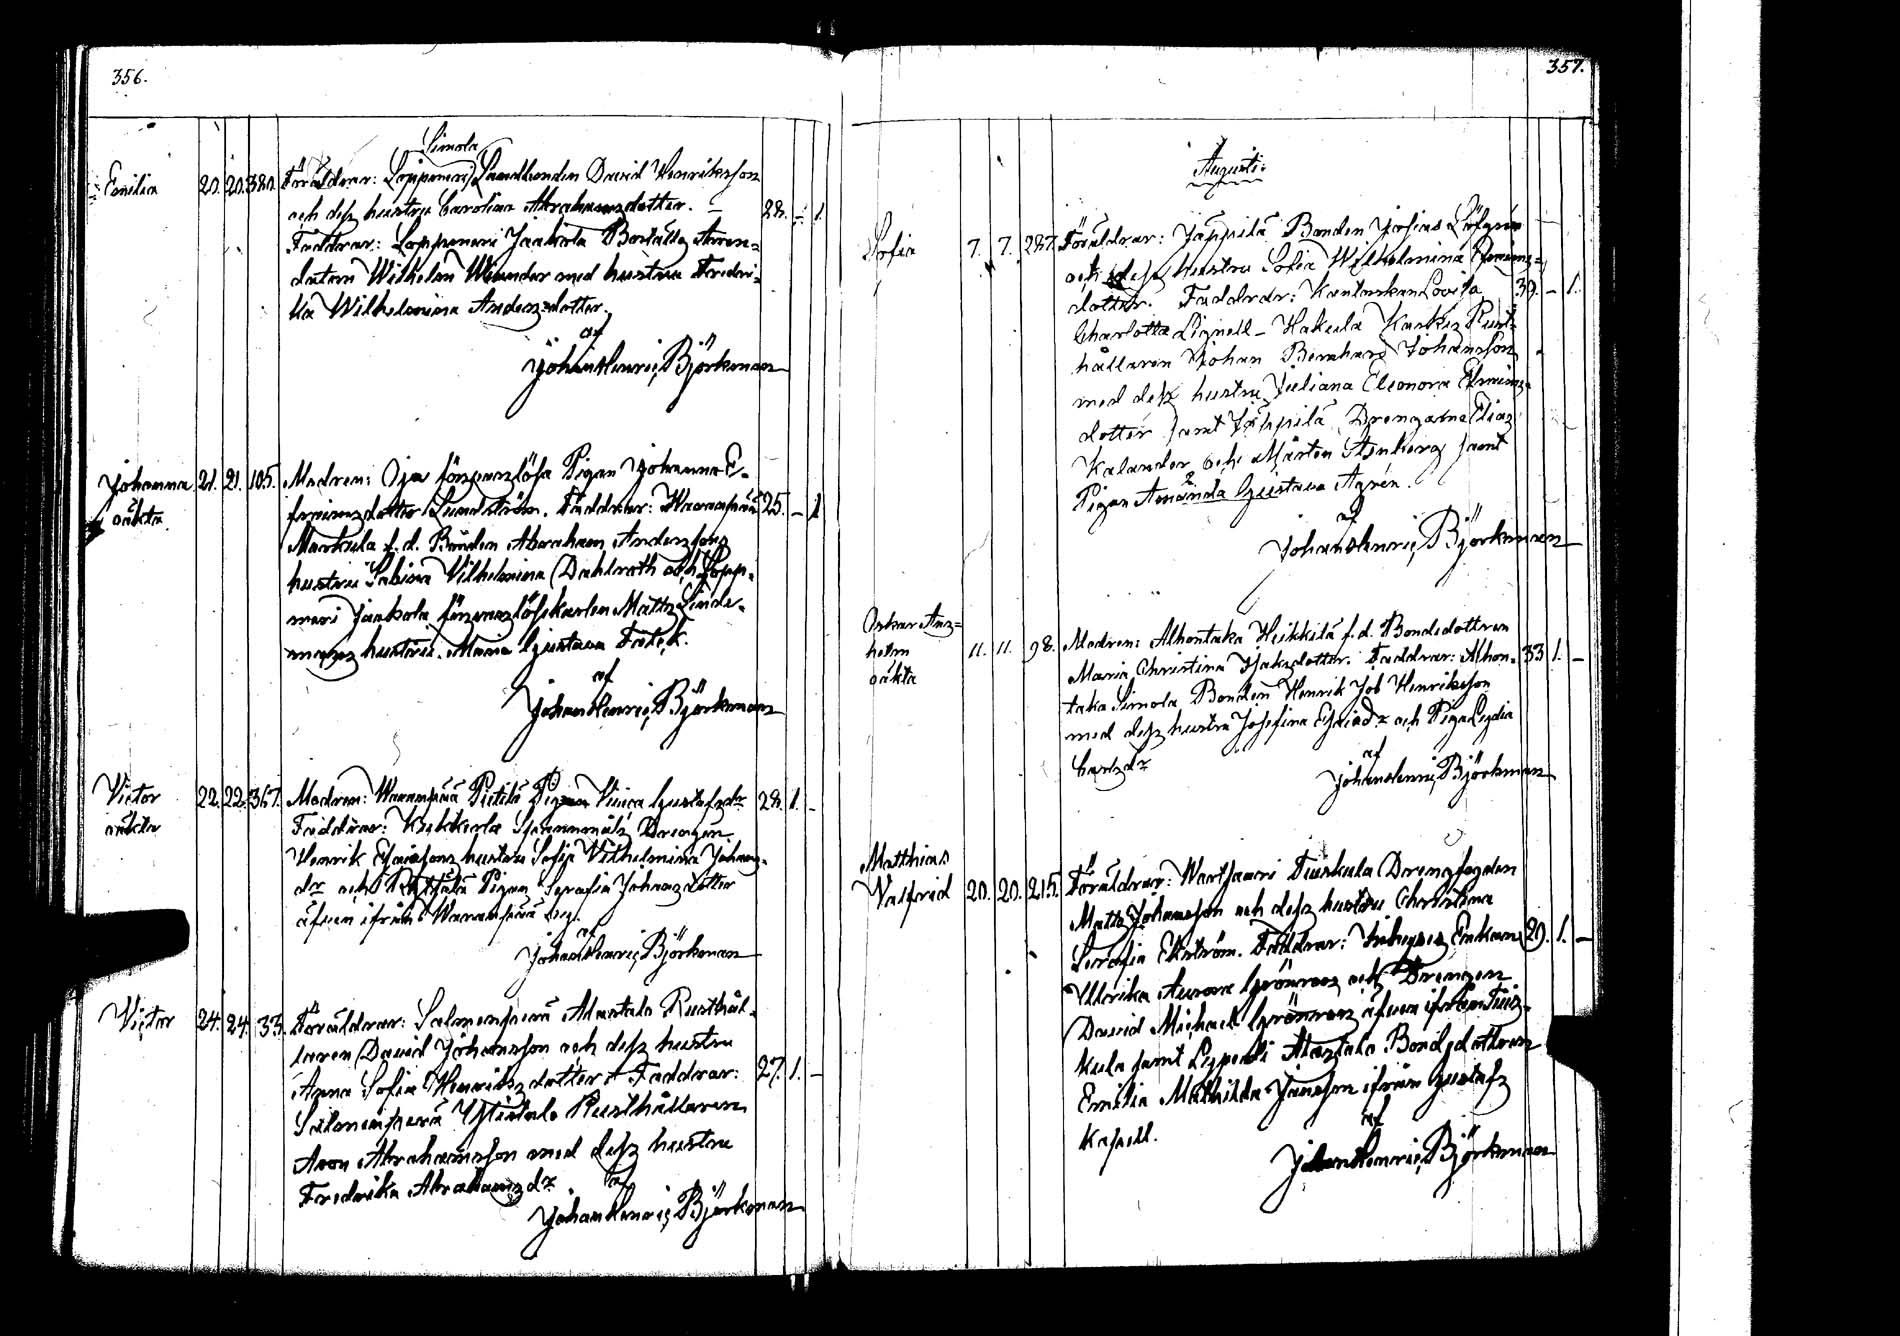 356.
Simola
Emilia 20. 20. 380. Föräldrar: Loppmeri Landbonden David Henriksson
och dess hustru Carolina Abrahamsdotter. — 28. – 1.
Faddrar: Loppmeri Jaakola Boställs Arren=
datorn Wilhelm Winander med hustru Fredri=
ka Wilhelmina Andersdotter.
af
Johan Henric Björkman
Johanna 21. 21. 105. Modren: Oja Pigan Johanna E=
oäkta fraimsdotter Lundström. Faddrar: Waranpää 25. – 1
Markula f. d. Bonden Abraham Anderssons
hustru Sabina Vilhelmina Dahlroth och Lopp=
meri Jaakola Matts Linde=
mans hustru Maria Gustava
af
Johan Henric Björkman
Victor 22. 22. 367. Modren: Waranpää Pietilä Pigan Gustafsdr 28. 1. –
oäkta Faddrar: Drengen
Henrik Esaiassons hustru Sofia Vilhelmina Johans=
dr och Pigan Serafia Johansdotter
äfven ifrån Waranpää
af
Johan Henric Björkman
Victor 24. 24. 33. Föräldrar: Salmenperä Alastalo Rusthål=
laren David Johansson och dess hustru
Anna Sofia Henriksdotter. Faddrar: 27. 1. –
Salmenperä Ylistalo Rusthållaren
Aron Abrahamsson med dess hustru
Fredrika Abrahamsdr
af
Johan Henric Björkman
357.
Augusti.
Sofia 7. 7. 287. Föräldrar: Jäppilä Bonden Josias Löfgrén
och dess hustru Sofia Wilhelmina
dotter. Faddrar: Lovisa 39. – 1.
Charlotta Lignell – Hakula Karhis Rust=
hållaren Johan Bernhard Johansson
med dess hustru Juliana Eleonora Efraims=
dotter samt Jäppilä Drengarne Elias
Kalander och Mårten Stenberg samt
Pigan Amanda Gustava Agrén.
af
Johan Henric Björkman
Oskar Ans=
helm 11. 11. 98. Modren: Ahontaka Heikkilä f. d. Bondedottren
oäkta Maria Christina Isaksdotter. Faddrar: Ahon= 33 1. –
taka Simola Bonden Henrik Job Henriksson
med dess hustru Josefina Esaiadr och Piga Lydia
Carlsdr
af
Johan Henric Björkman
Matthias
Valfrid 20. 20. 215. Föräldrar: Wartsaari Tuiskula Drengfogden
Matts Johansson och dess hustru Christina
Serafia Ekström. Faddrar: Enkan 29. 1. –
Ullrika Aurora Grönroos och Drengen
David Michael Grönroos äfven ifrån Tuis=
kula samt Alastalo Bondedottren
Emilia Mathilda Jansson ifrån Gustafs
Kapell.
af
Johan Henric Björkman